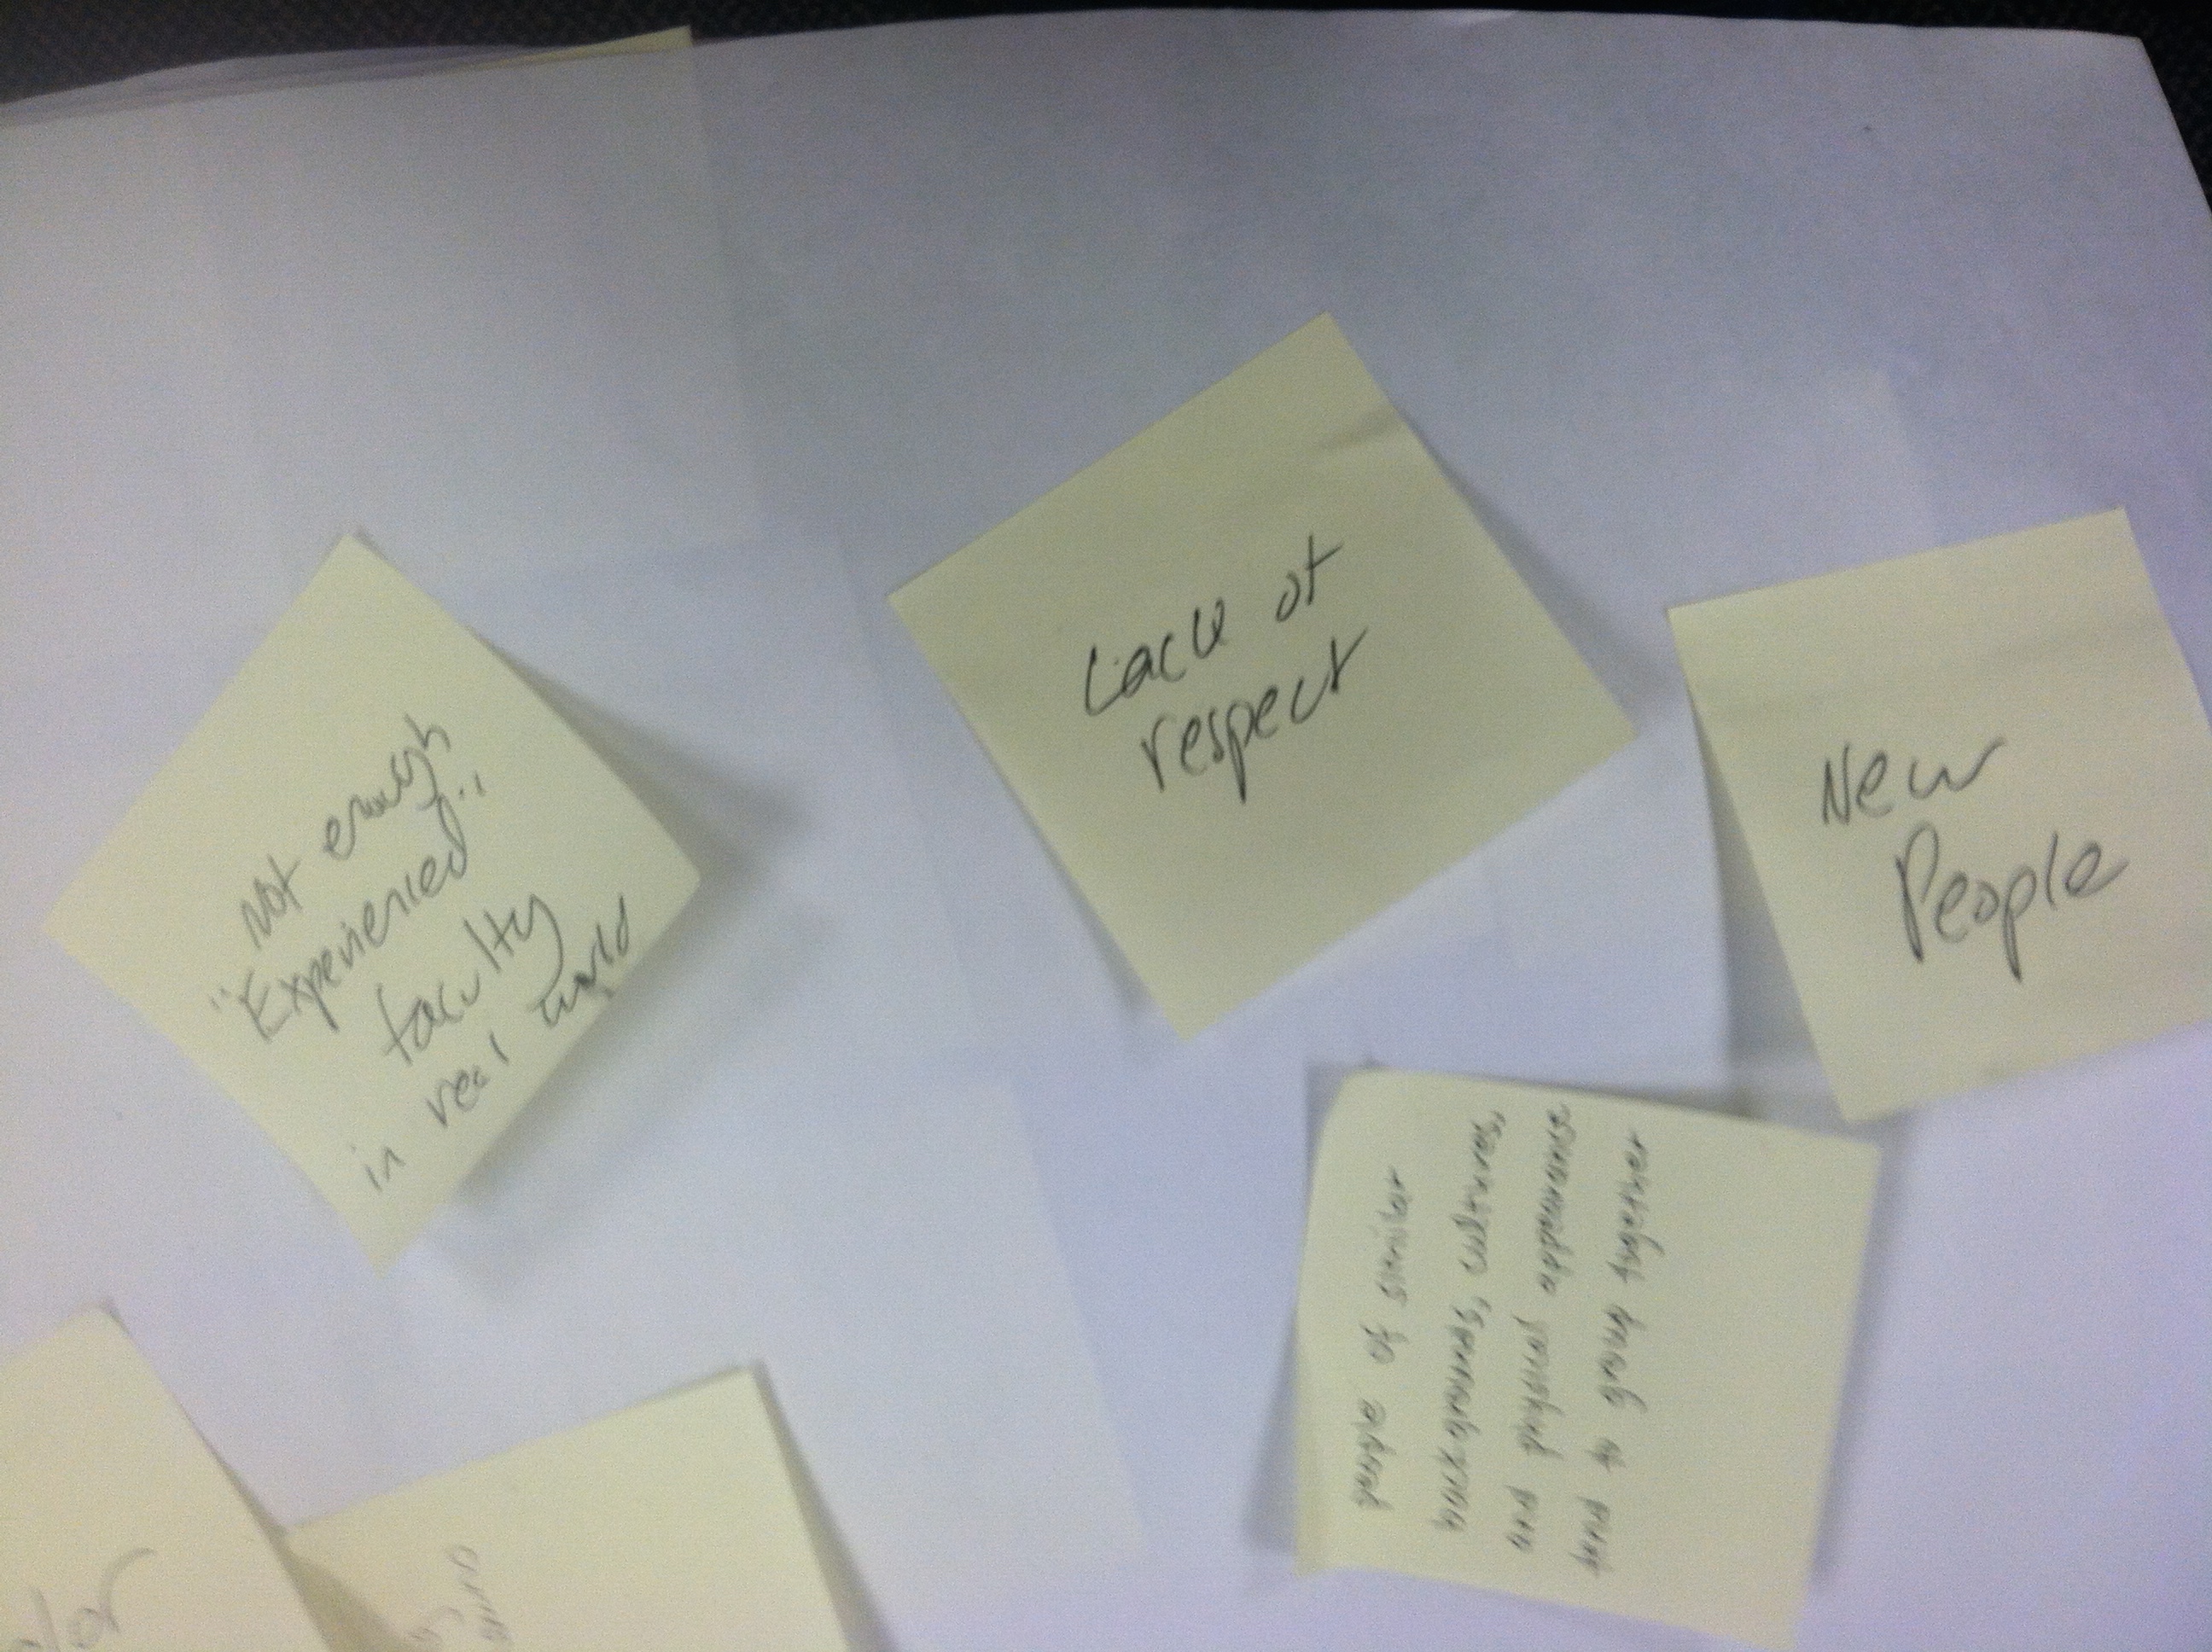 Not enough
"Experienced"
faculty
in real world
Lack of
respect
New
People
people of similar
backgrounds, cultures,
and physical appearance
tend to group together